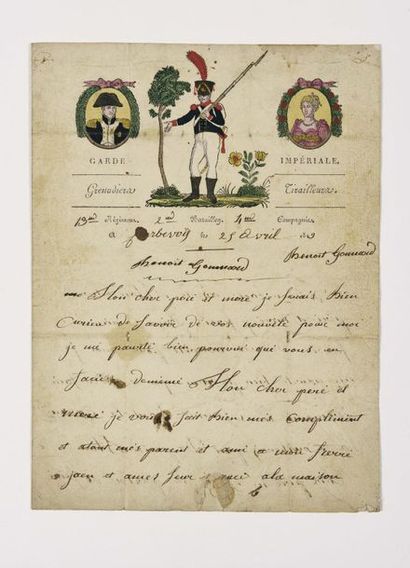 GARDE IMPÉRIALE.
Grenadiers Tirailleurs
13me Régiment 2me Bataillon 4me Compagnie
a Corbevois le 25 Avril
Benoit Gonnard Benoit Gonnard
Mon cher pere et mere je serais bien
Curieu de savoir de vos nouvele pour moi
je me pourte bien pourvui que vous en
de meme Mon cher pere et
mere je vous fait bien mes Compliment
et a tout mes parent et ami a mon frere
et a mes seur a la maison